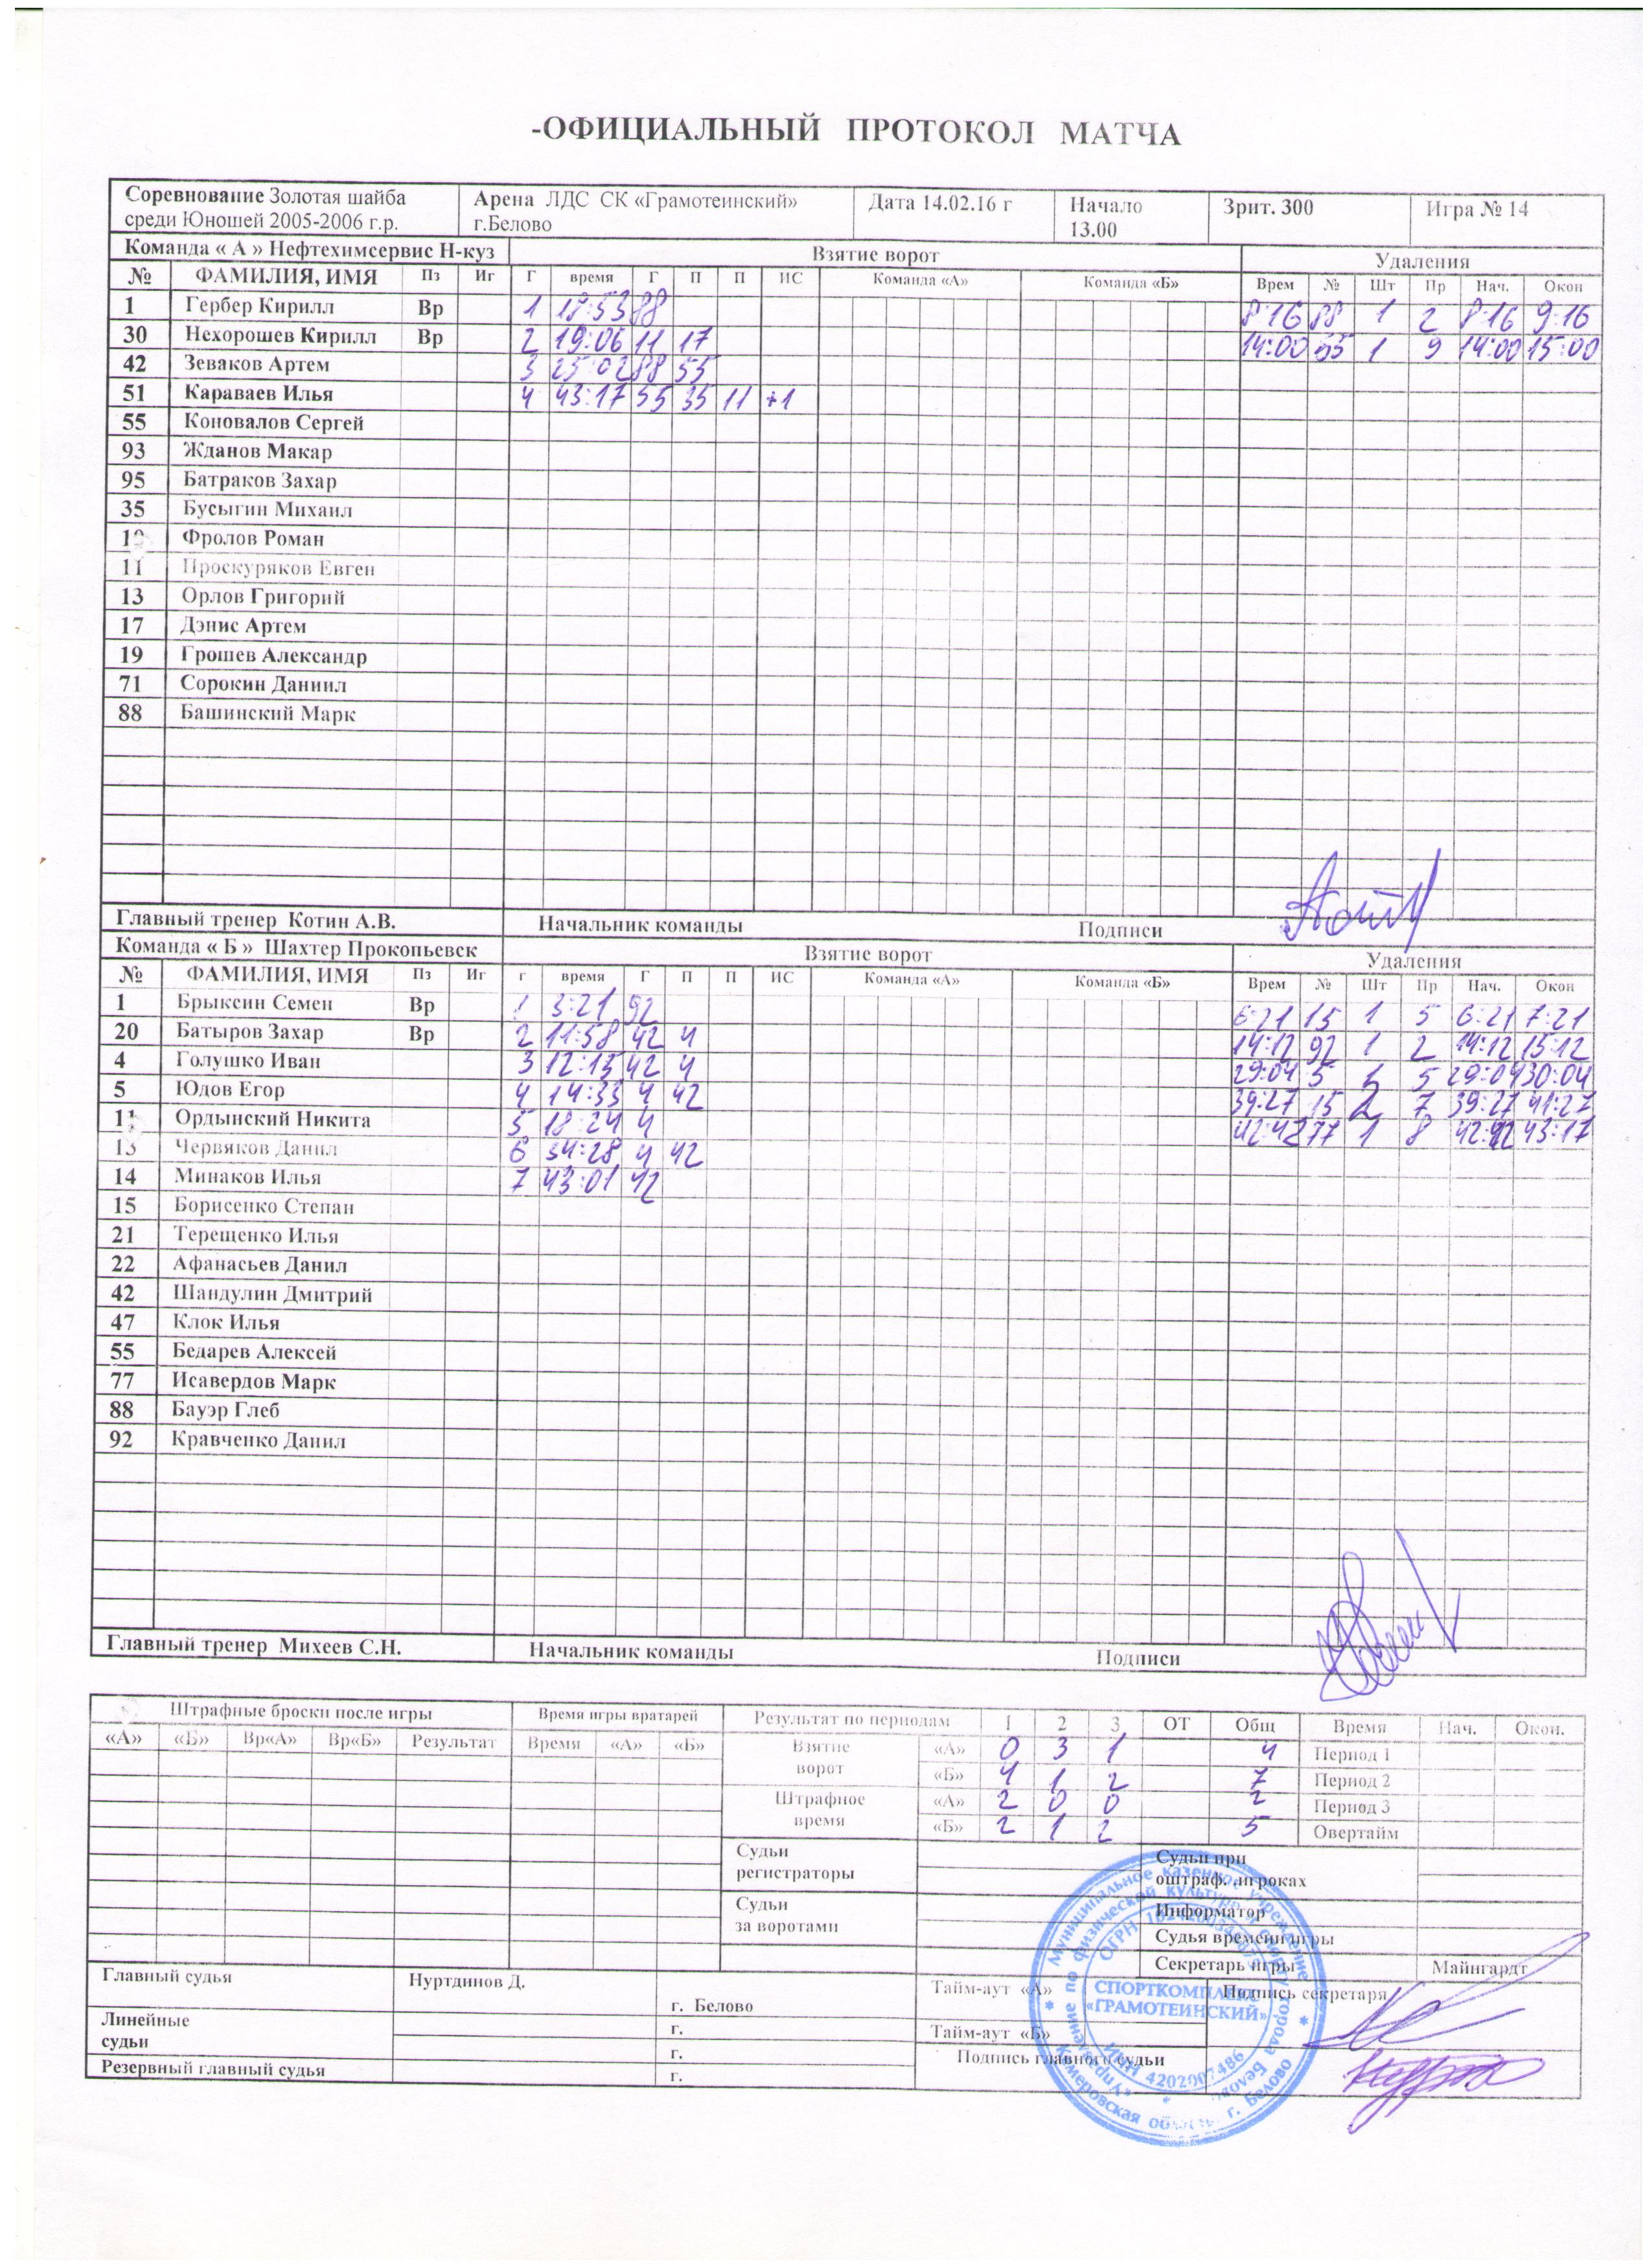 -ОФИЦИАЛЬНЫЙ ПРОТОКОЛ МАТЧА
Соревнование Золотая шайба среди Юношей 2005-2006 г.р. Арена ЛДС СК «Грамотеинский» г.Белово Дата 14.02.16 г Начало 13.00 Зрит. 300 Игра № 14
Команда « А » Нефтехимсервис Н-куз Взятие ворот Удаления
№ ФАМИЛИЯ, ИМЯ Пз Иг Г время Г П П ИС Команда «А» Команда «Б» Врем № Шт Пр Нач. Окон
1 Гербер Кирилл Вр 1 18:53 88 8:16 88 1 2 8:16 9:16
30 Нехорошев Кирилл Вр 2 19:06 11 17 14:00 55 1 9 14:00 15:00
42 Зеваков Артем 3 25:02 88 55
51 Караваев Илья 4 43:17 55 35 11 +1
55 Коновалов Сергей
93 Жданов Макар
95 Батраков Захар
35 Бусыгин Михаил
Фролов Роман
11 Проскуряков Евген
13 Орлов Григорий
17 Дэнис Артем
19 Грошев Александр
71 Сорокин Даниил
88 Башинский Марк
Главный тренер Котин А.В. Начальник команды Подписи
Команда « Б » Шахтер Прокопьевск Взятие ворот Удаления
№ ФАМИЛИЯ, ИМЯ Пз Иг г время Г П П ИС Команда «А» Команда «Б» Врем № Шт Пр Нач. Окон
1 Брыксин Семен Вр 1 3:21 92 6:21 15 1 5 6:21 7:21
20 Батыров Захар Вр 2 11:58 42 4 14:12 92 1 2 14:12 15:12
4 Голушко Иван 3 12:15 42 4 29:04 5 1 5 29:04 30:04
5 Юдов Егор 4 14:33 4 42 39:27 15 2 7 39:27 41:27
11 Ордынский Никита 5 18:24 4 42:42 77 1 8 42:42 43:17
13 Червяков Данил 6 34:28 4 42
14 Минаков Илья 7 43:01 42
15 Борисенко Степан
21 Терещенко Илья
22 Афанасьев Данил
42 Шандулин Дмитрий
47 Клок Илья
55 Бедарев Алексей
77 Исавердов Марк
88 Бауэр Глеб
92 Кравченко Данил
Главный тренер Михеев С.Н. Начальник команды Подписи
Штрафные броски после игры Время игры вратарей Результат по периодам 1 2 3 ОТ Общ Время Нач. Окон.
«А» «Б» Вр«А» Вр«Б» Результат Время «А» «Б» Взятие ворот «А» 0 3 1 4 Период 1
«Б» 4 1 2 7 Период 2
Штрафное время «А» 2 0 0 2 Период 3
«Б» 2 1 2 5 Овертайм
Судьи регистраторы Судьи при оштраф. игроках
Судьи за воротами Информатор
Судья времени игры
Секретарь игры Майнгардт
Главный судья Нуртдинов Д. г. Белово Тайм-аут «А» Подпись секретаря
Линейные судьи г. Тайм-аут «Б»
г. Подпись главного судьи
Резервный главный судья г.
Муниципальное казенное учреждение
СПОРТКОМПЛЕКС
«ГРАМОТЕИНСКИЙ»
ИНН 4202007486